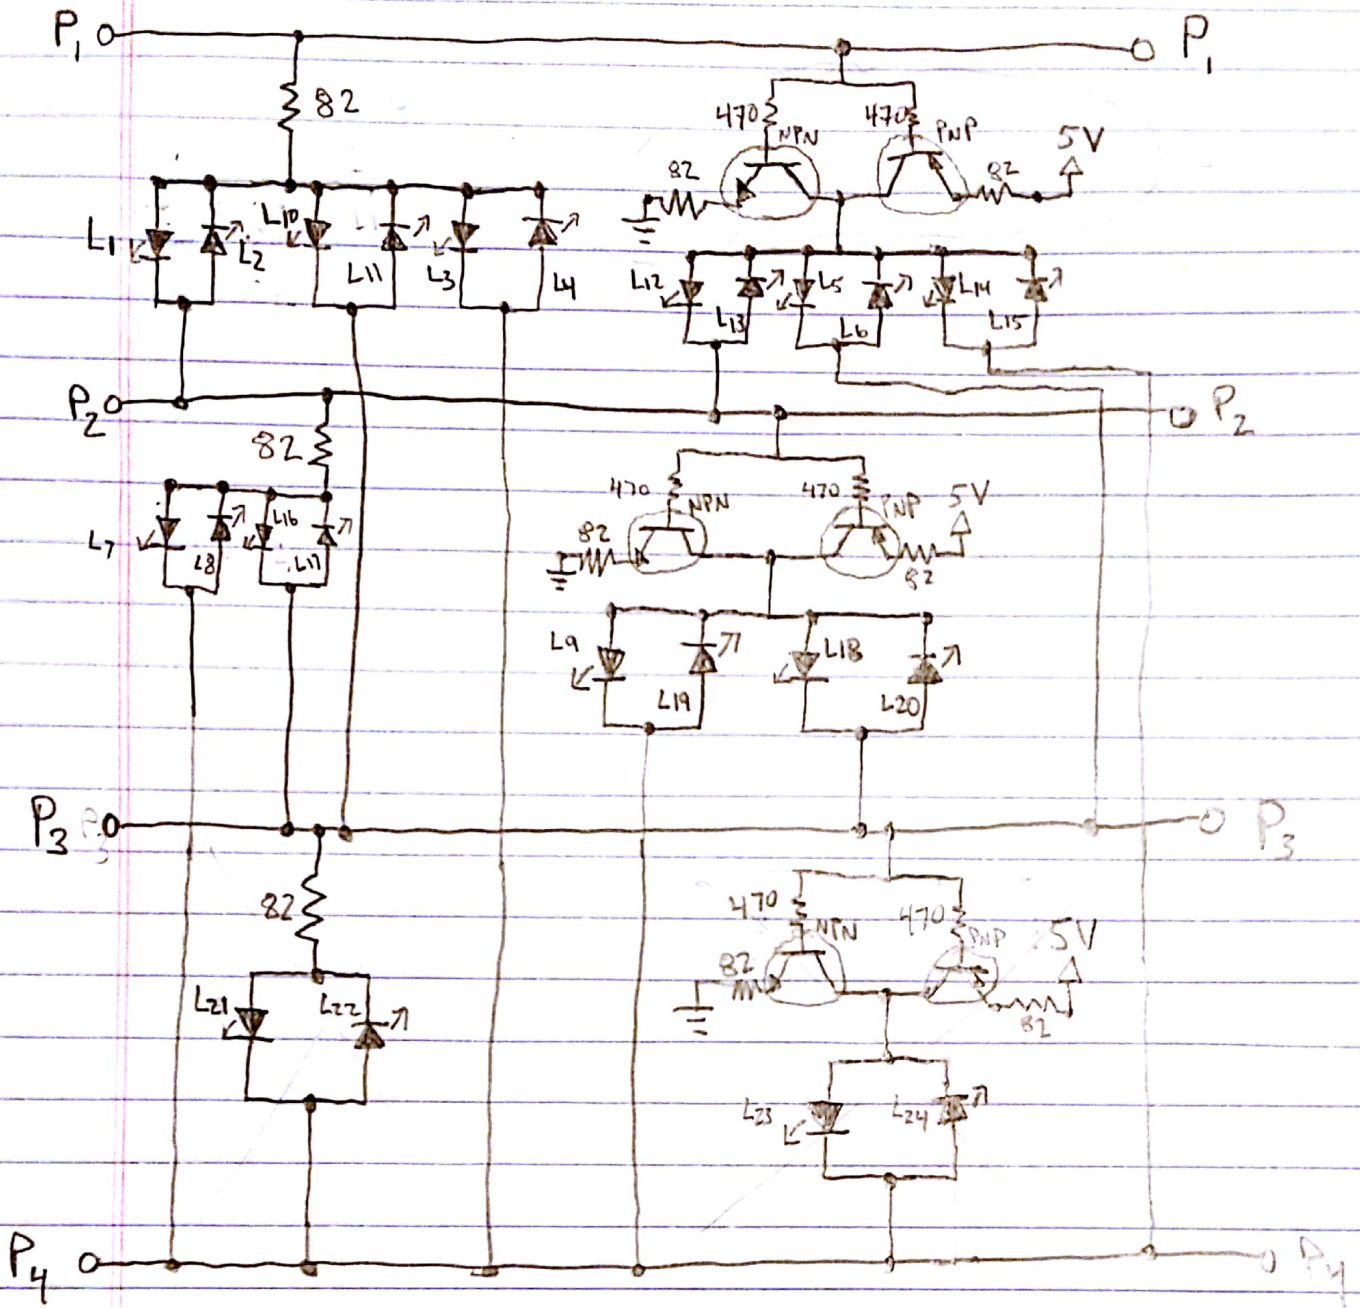 P1 P1
82
470 NPN 470 PNP 5V
82 82
L1 L2 L10 L11 L3 L4
L12 L13 L5 L6 L14 L15
P2 P2
82
470 NPN 470 PNP 5V
82 82
L7 L8 L16 L17
L9 L19 L18 L20
P3 P3
82
470 NPN 470 PNP 5V
82 82
L21 L22
L23 L24
P4 P4